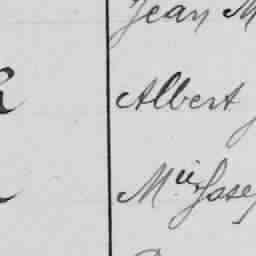 Jean M
Albert J
Mie Jose